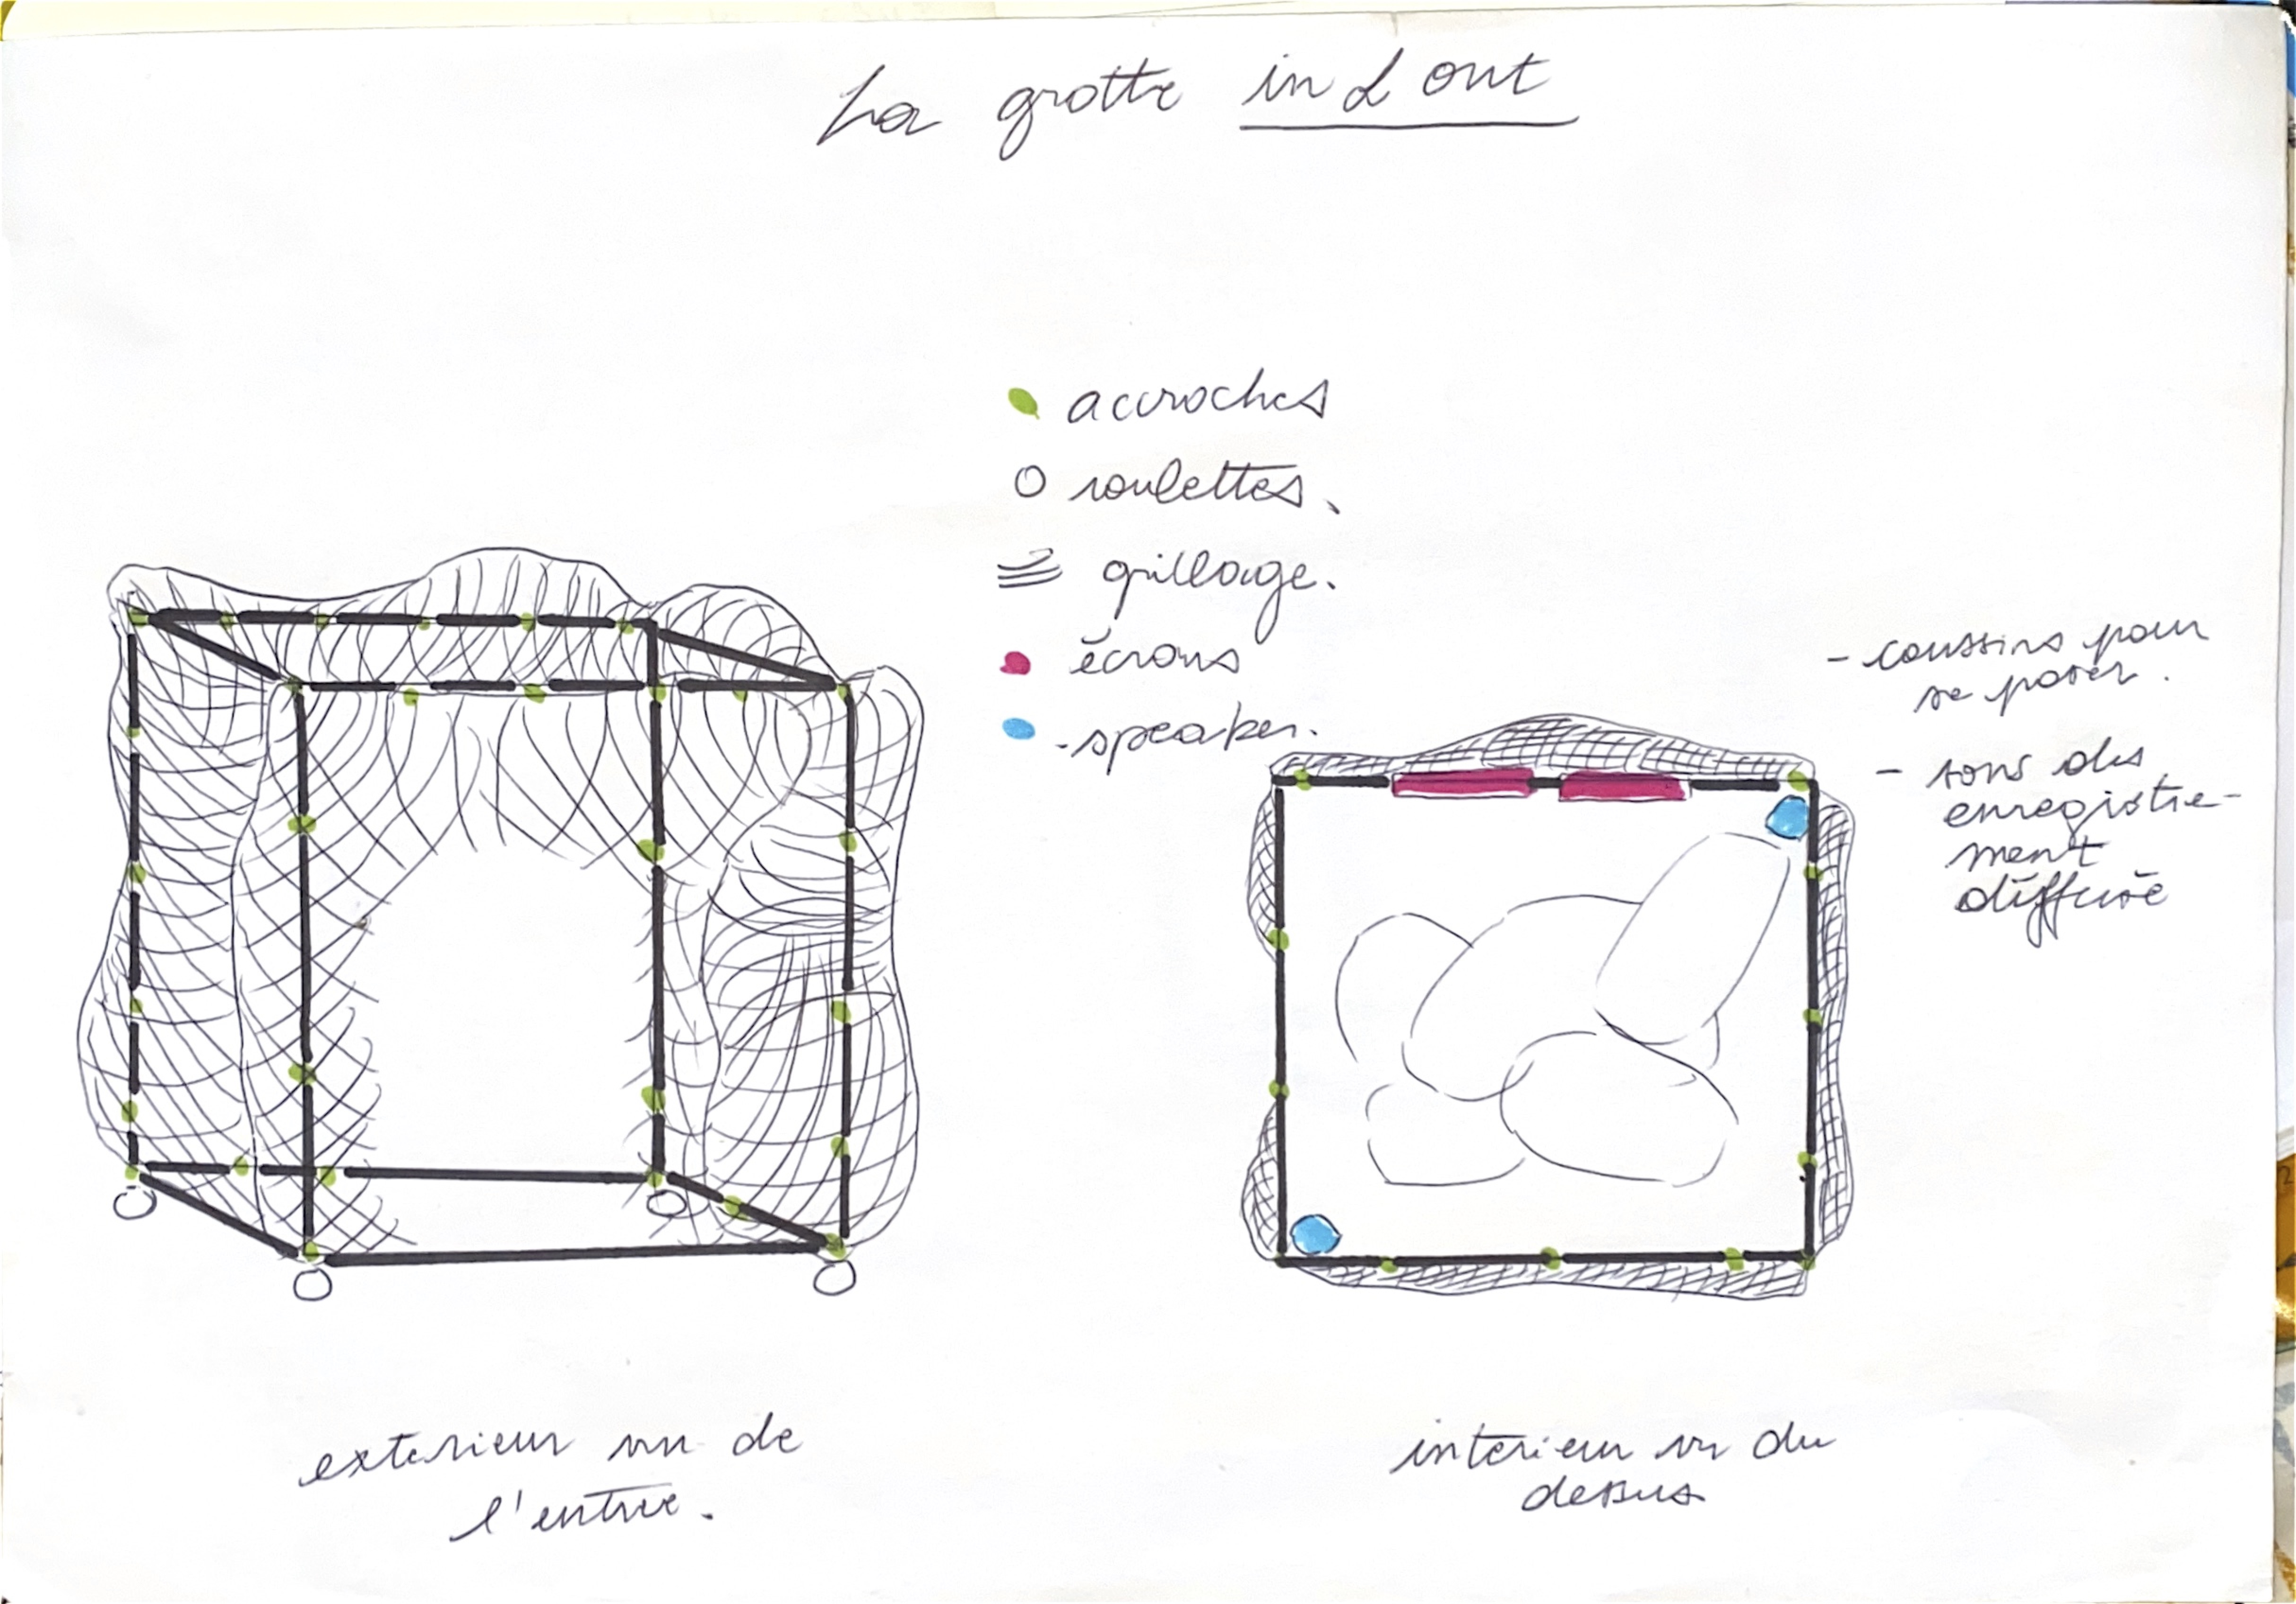 La grotte in & out
accroches
roulettes.
grillage.
écrans
-speaker.
- coussins pour
se poser.
- sons des
enregistre-
ment
diffusé
exterieur vu de
l'entrée.
interieur vu du
dessus